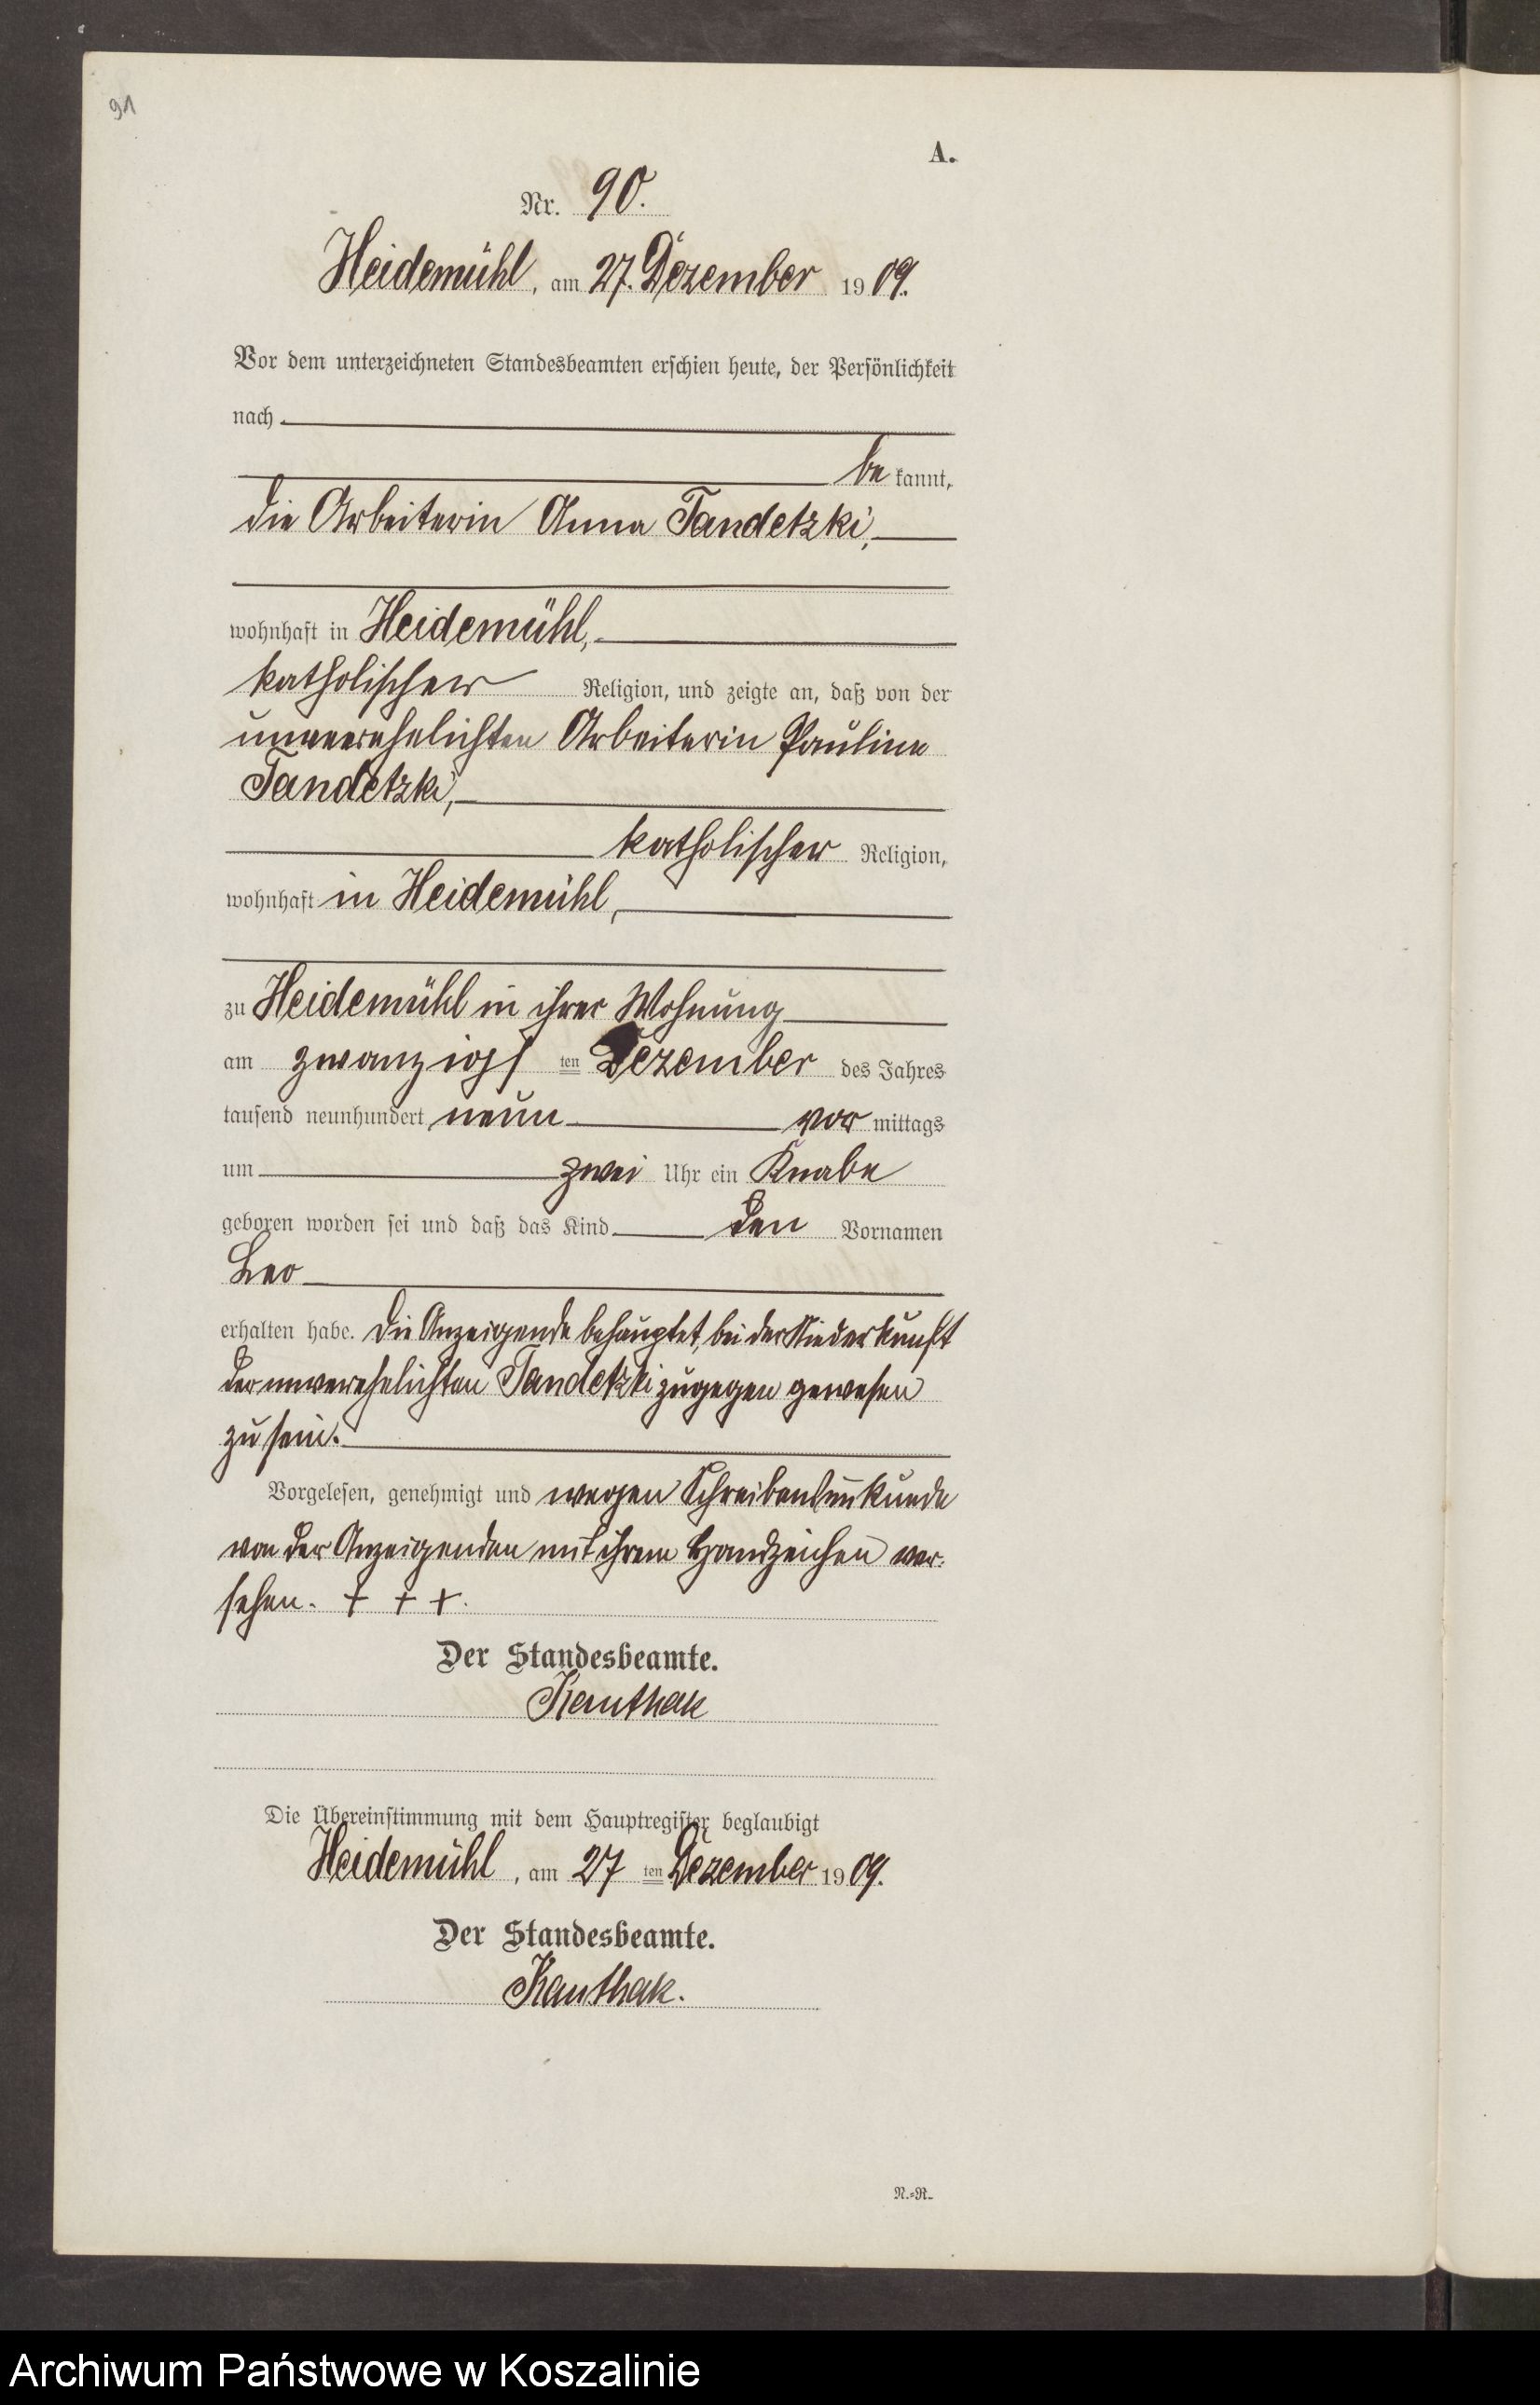 91
A.
Nr. 90.
Heidemühl, am 27. Dezember 1909.
Vor dem unterzeichneten Standesbeamten erschien heute, der Persönlichkeit
nach
be kannt,
die Arbeiterin Anna Tandetzki,
wohnhaft in Heidemühl,
katholischer Religion, und zeigte an, daß von der
unverehelichten Arbeiterin Pauline
Tandetzki,
katholischer Religion,
wohnhaft in Heidemühl,
zu Heidemühl in ihrer Wohnung
am zwanzigs ten Dezember des Jahres
tausend neunhundert neun vor mittags
um zwei Uhr ein Knabe
geboren worden sei und daß das Kind den Vornamen
Leo
erhalten habe. Die Anzeigende behauptet, bei der Niederkunft
der unverehelichten Tandetzki zugegen gewesen
zu sein.
Vorgelesen, genehmigt und wegen Schreibensunkunde
von der Anzeigenden mit ihrem Handzeichen ver-
sehen. + + +.
Der Standesbeamte.
Kauthak
Die Übereinstimmung mit dem Hauptregister beglaubigt
Heidemühl, am 27 ten Dezember 1909.
Der Standesbeamte.
Kauthak.
N.=R.
Archiwum Państwowe w Koszalinie